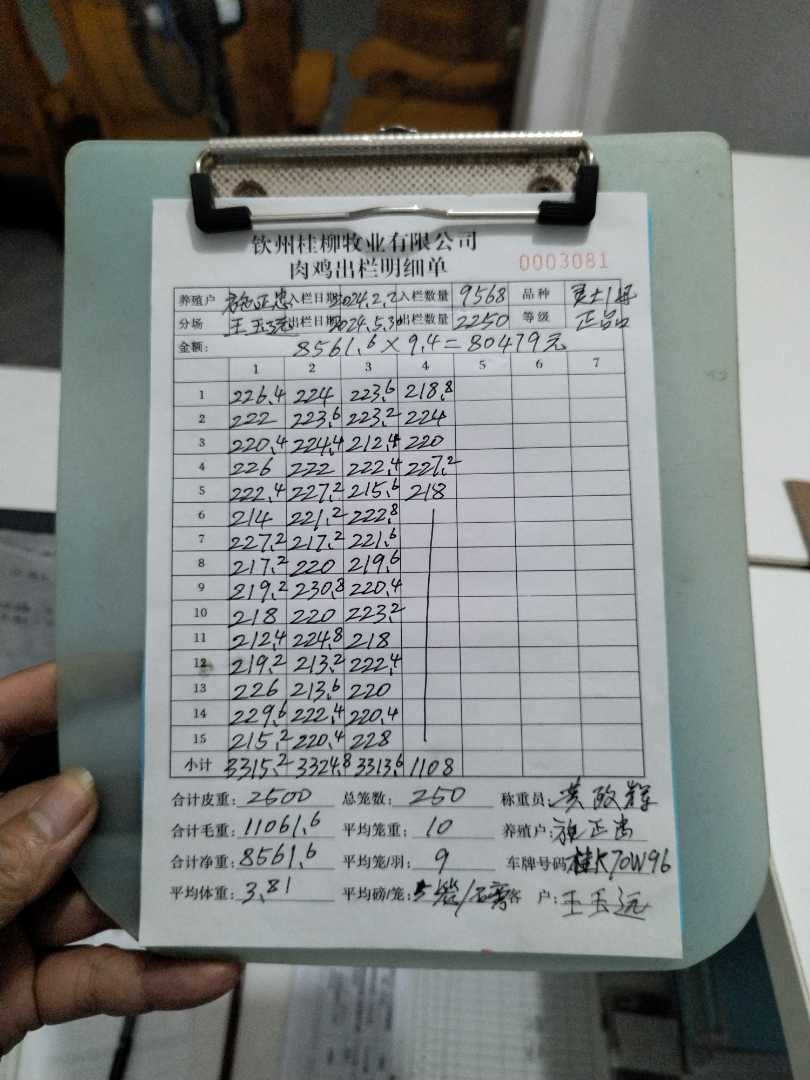 钦州桂柳牧业有限公司
肉鸡出栏明细单 0003081
养殖户 施正忠 入栏日期 2024.2.2 入栏数量 9568 品种
分场 王玉远 出栏日期 2024.5.30 出栏数量 2250 等级 正品
金额: 8561.6×9.4=80479元
1 2 3 4 5 6 7
1 226.4 224 223.6 218.8
2 222 223.6 223.2 224
3 220.4 224.4 212.4 220
4 226 222 222.4 227.2
5 222.4 227.2 215.6 218
6 214 221.2 222.8
7 227.2 217.2 221.6
8 217.2 220 219.6
9 219.2 230.8 220.4
10 218 220 223.2
11 212.4 224.8 218
12 219.2 213.2 222.4
13 226 213.6 220
14 229.6 222.4 220.4
15 215.2 220.4 228
小计 3315.2 3324.8 3313.6 1108
合计皮重: 2500 总笼数: 250 称重员:
合计毛重: 11061.6 平均笼重: 10 养殖户: 施正忠
合计净重: 8561.6 平均笼/羽: 9 车牌号码 桂K70W96
平均体重: 3.81 平均磅/笼: 客 户: 王玉远